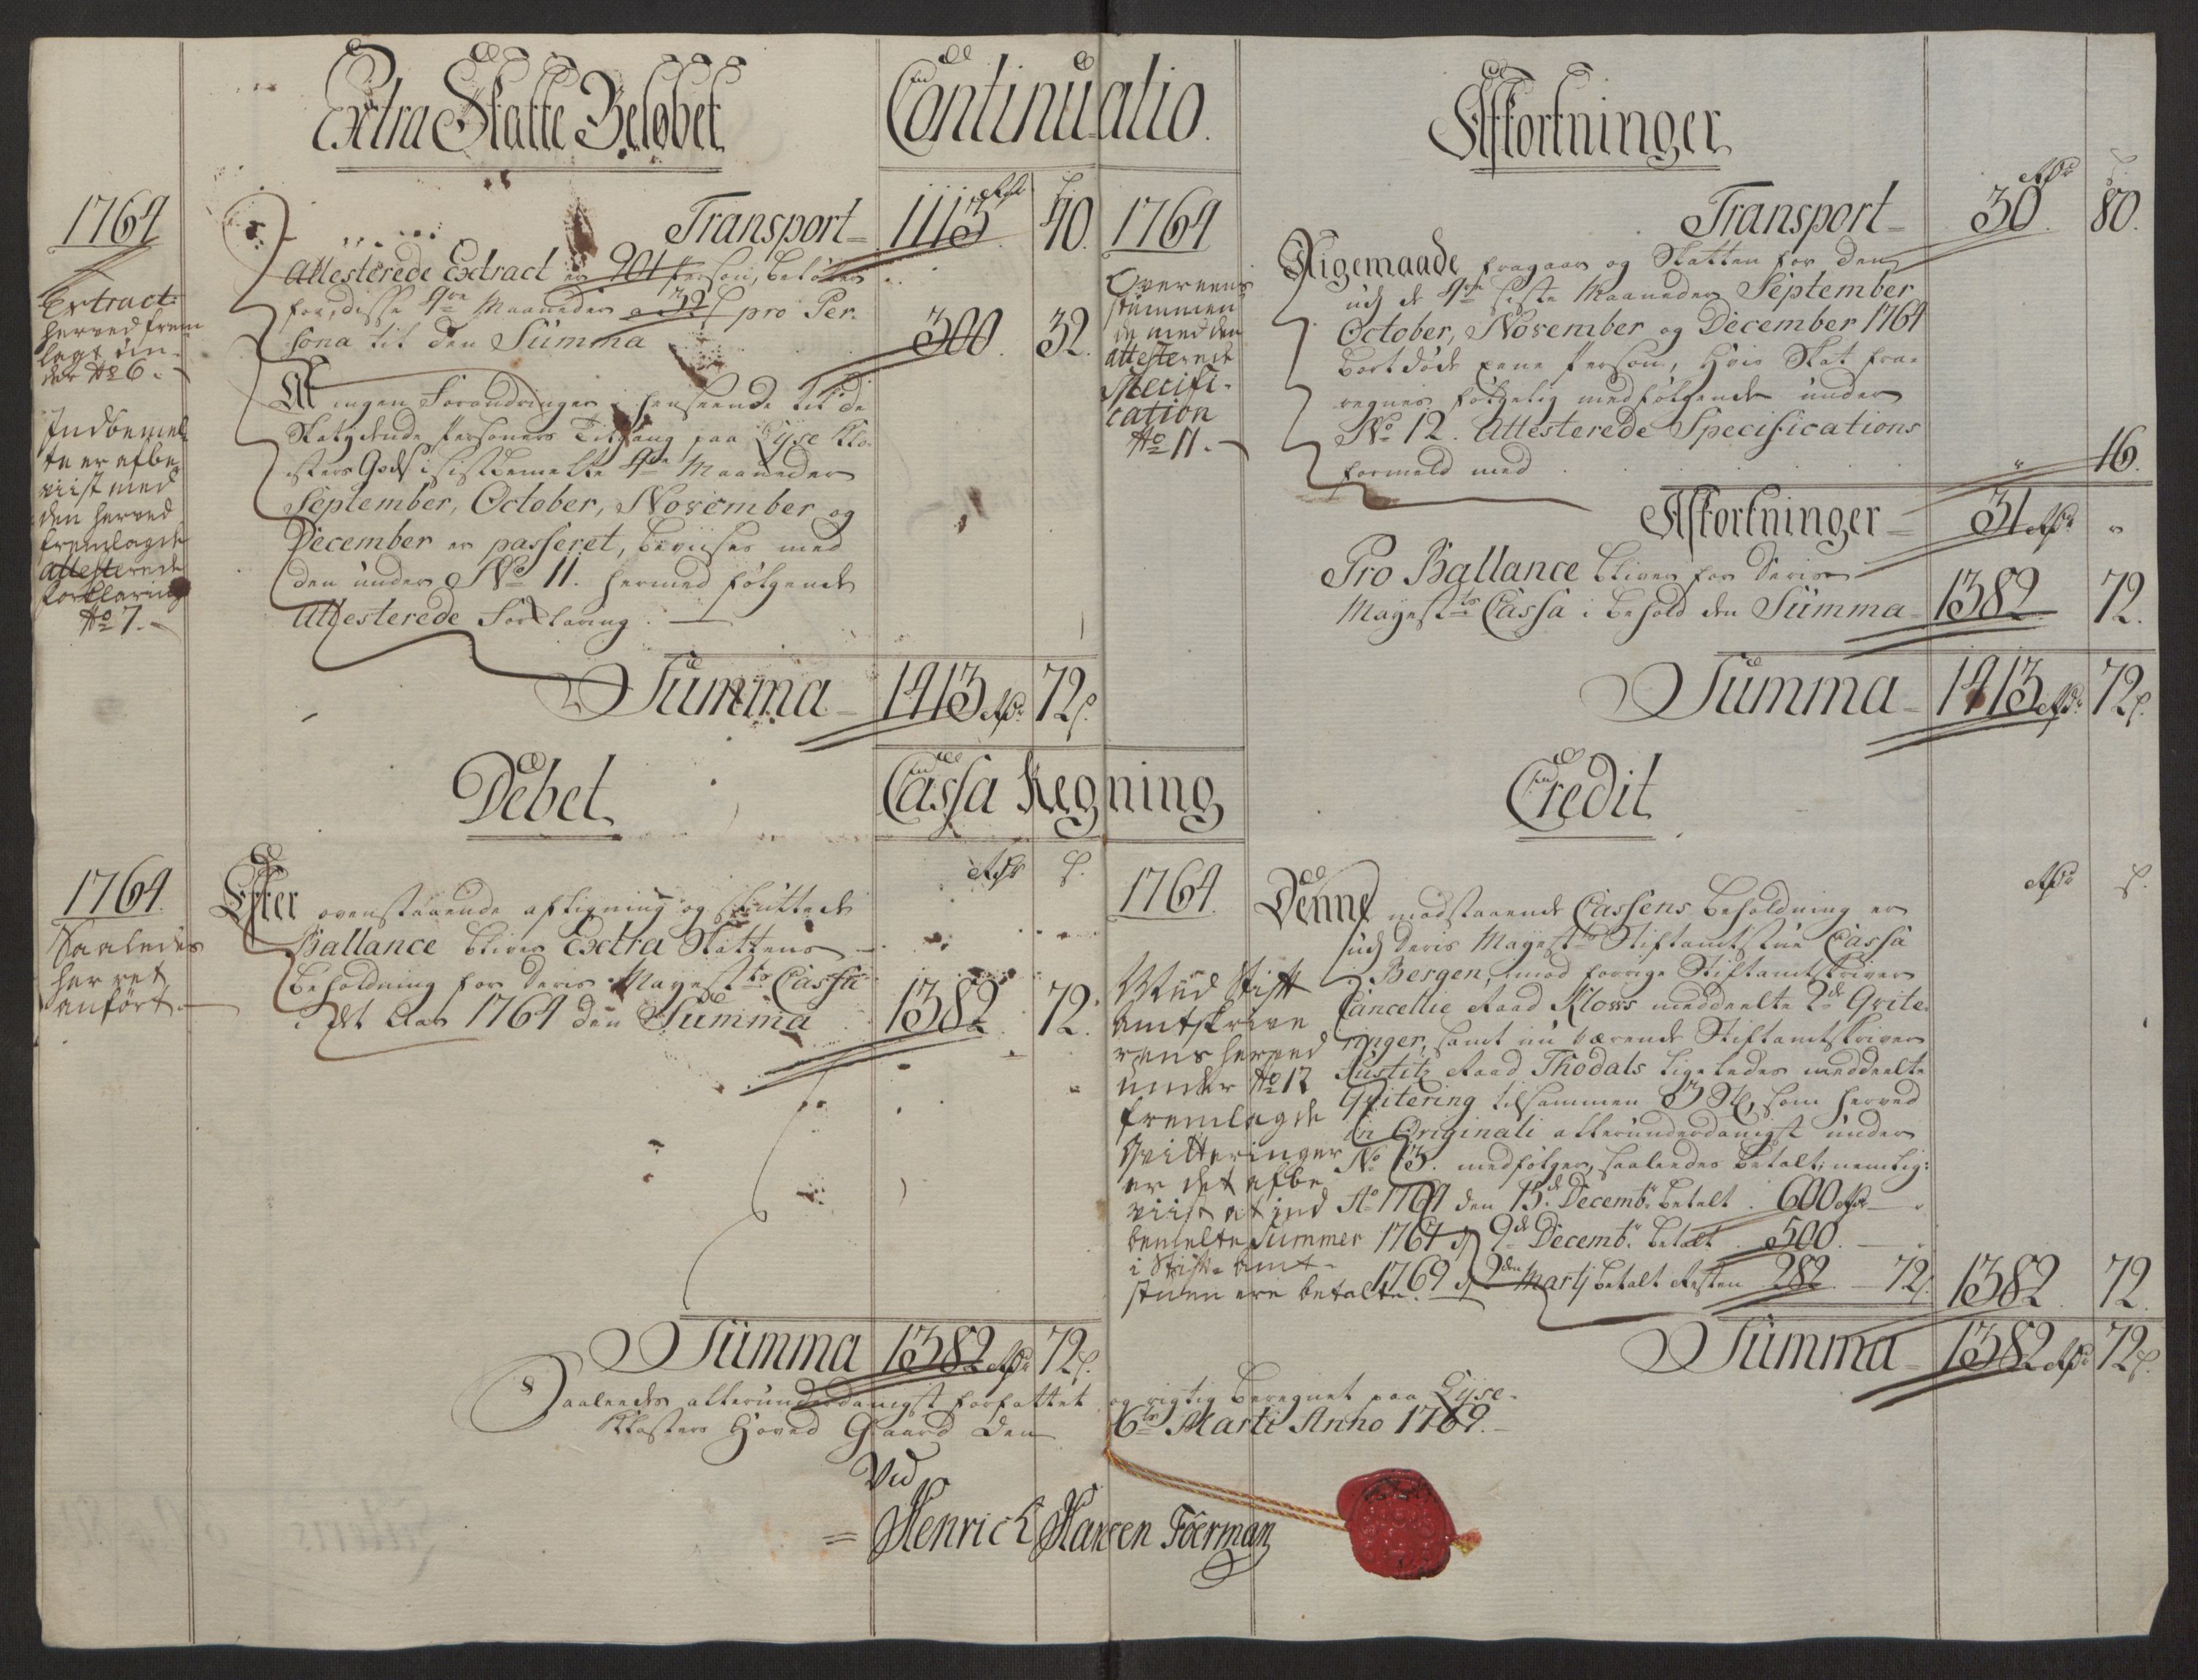 Extra Skatte Beløbet
Continuatio.
Afkortninger
1764
Extract
herved frem
lagt un-
der No 6.
Indbemel
te er afbe
viist med
den herved
fremlagde
attesterede
forklaring
No 7.
Transport 1113 Rd 40.
Attesterede Extract er 901 Person, beløber
for disse 4re Maaneder a 32 s pro Per-
sona til den Summa 300. 32.
At ingen Forandringer i henseende til de
Skatydende Personers Tilgang paa Lyse Klo-
sters Gods i sistbemelte 4re Maaneder
September, October, November og
December er passeret, beviises med
den under No 11. hermed følgende
Attesterede Forklaring.
Summa 1413 Rd 72 s.
1764
Overeens
stemmen
de med den
attesterede
Specifi-
cation
No 11.
Transport 30. Rd 80.
Ligemaade fragaar og Skatten for den
udj de 4re siste Maaneder September
October, November og December 1764
bortdøde eene Person, hvis Skat fra-
regnes følgelig medfølgende under
No 12. Attesterede Specifications
formeld med 16.
Afkortninger 31 Rd
Pro Ballance bliver for Deris
Mayestts Cassa i behold den Summa 1382 72.
Summa 1413 Rd 72 s.
Debet
Cassa Regning
Credit
1764
Saaledes
her ret
anført.
Rd s.
Efter ovenstaaende afligning og sluttede
Ballance bliver Extra Skattens
beholdning for Deris Mayestts Cassa
i det Aar 1764 den Summa 1382. 72.
Summa 1382 Rd 72 s.
1764
Med Stift
amtskrive
rens herved
under No 12
fremlagde
Qvitteringer
er det afbe
viist at ind
bemelte Summer
i Stift-amt-
stuen ere betalte.
Rd s.
Denne modstaaende Cassens beholdning er
udj Deris Mayestts Stiftamtstue Cassa
i Bergen, mod forrige Stiftamtskriver
Cancellie Raad Klows meddeelte 2de Qvite-
ringer, samt nu værende Stiftamtskriver
Justitz Raad Thodals ligeledes meddeelte
Qvitering tilsammen 3 St, som herved
in Originali allerunderdanigst under
No 13. medfølger, saaledes betalt; nemlig:
Ao 1764 den 15de Decembr betalt 600 Rd
1767 d 9de Decembr betalt 500.
1769 d 2den Martj betalt Resten 282 72 s. 1382. 72.
Summa 1382 Rd 72 s.
Saaledes allerunderdanigst forfattet og rigtig beregnet paa Lyse-
Klosters Hoved Gaard den 6te Marti Anno 1769.
Ved
Henrich Hansen Foerman